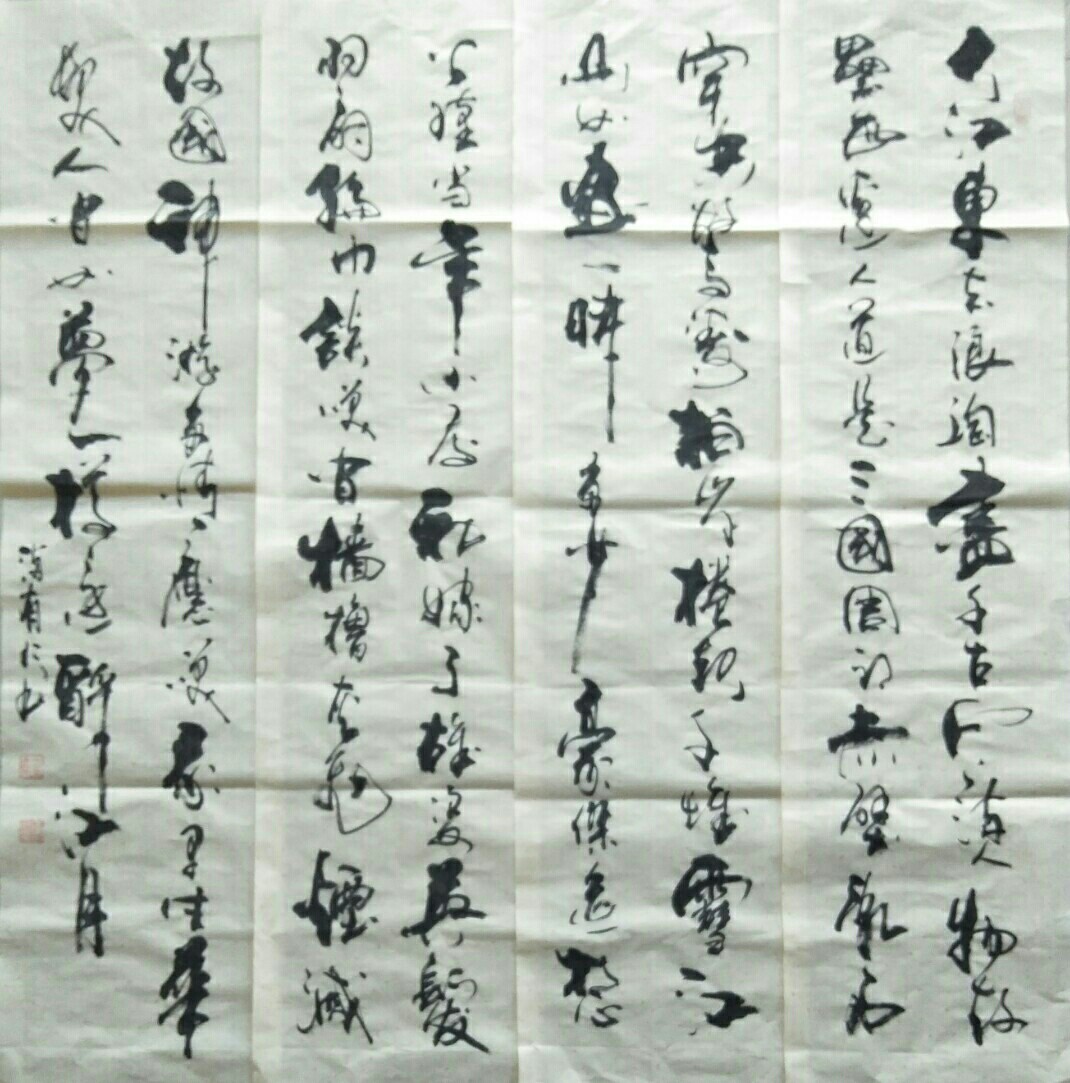 大江東去浪淘盡千古风流人物故
壘西邊人道是三國周郎赤壁亂石
穿空驚濤拍岸捲起千堆雪江
山如畫一時多少豪傑遥想
公瑾当年小喬初嫁了雄姿英髮
羽扇綸巾談笑间檣櫓灰飛煙滅
故國神游多情應笑我早生華
髮人间如夢一樽還酹江月
有仁书